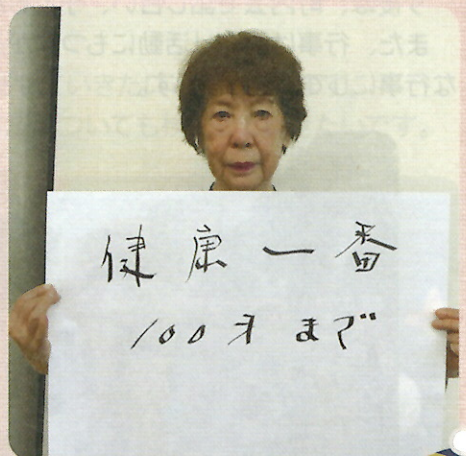 健康一番
100才まで